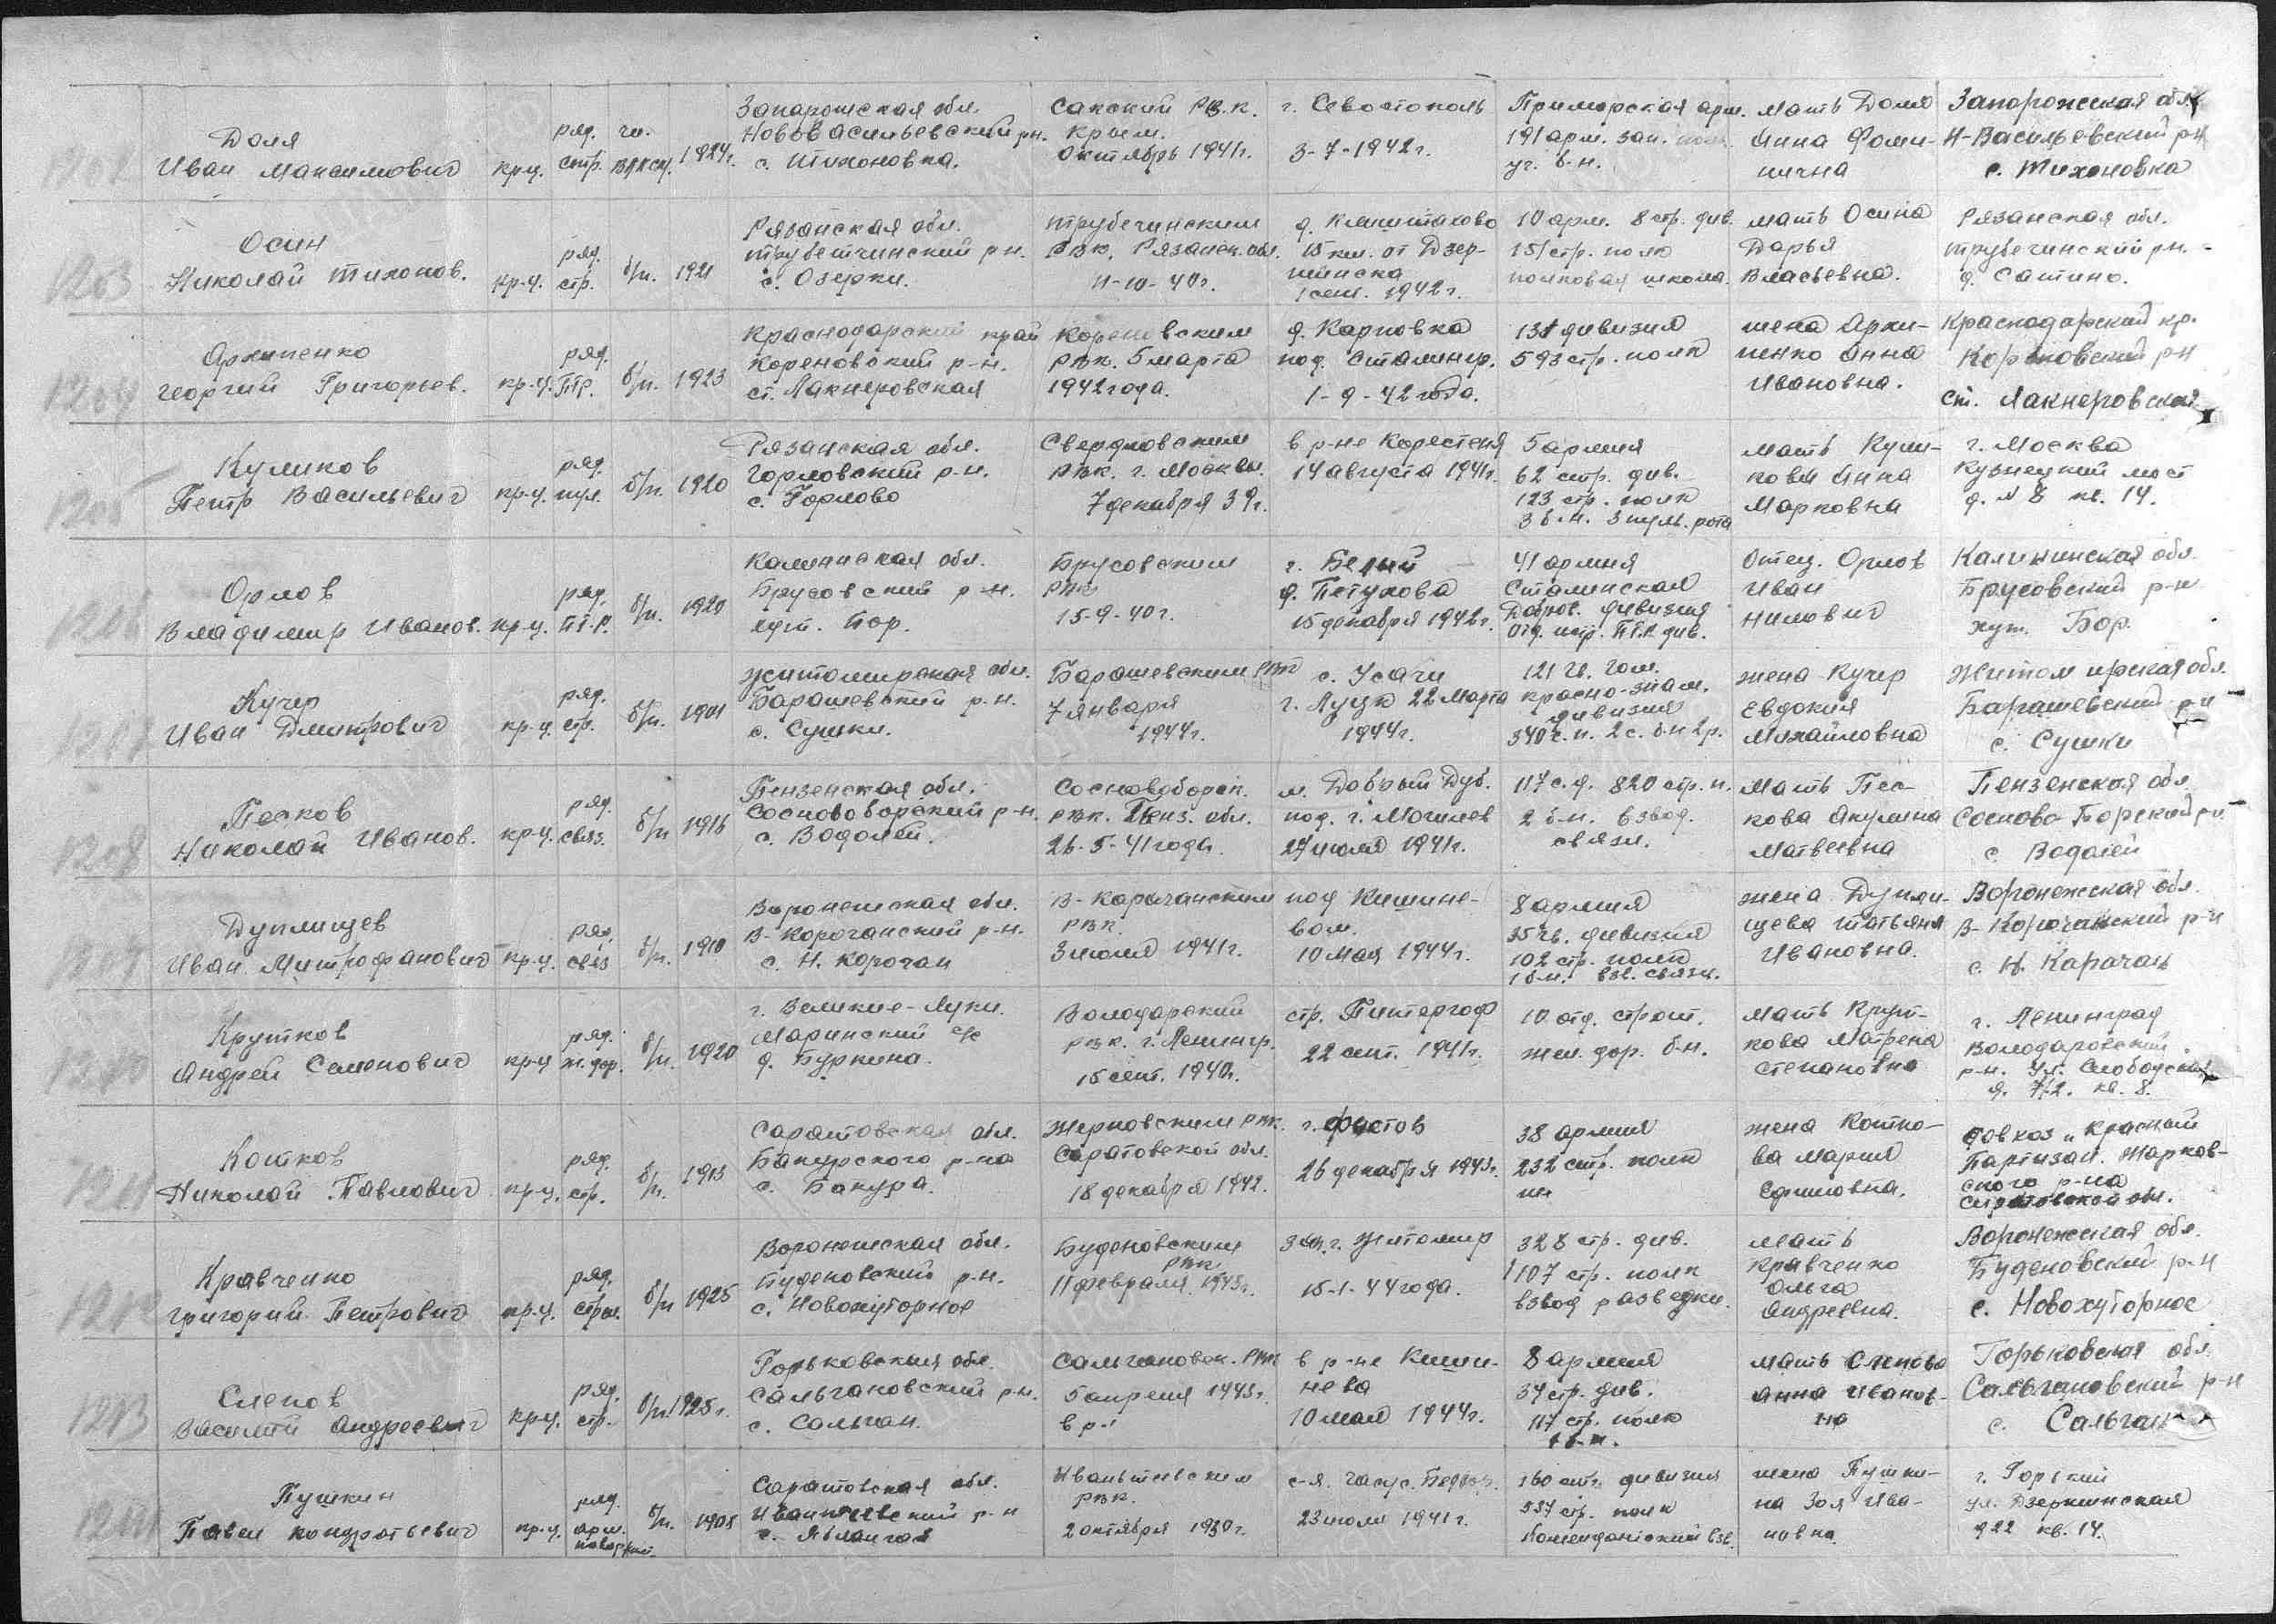 1202
Доля
Иван Максимович
кр-ц.
ряд.
стр.
чл.
ВЛКСМ.
1924г.
Запарожская обл.
Нововасильевский рн.
с. Тихоновка.
Сакский РВК.
Крым.
Октябрь 1941г.
г. Севостополь
3-7-1942г.
Приморская арм.
191 арм. зап. пол.
уч. б-н.
Мать Доля
Анна Фоми-
нична
Запорожская обл.
Н-Васильевский р-н
с. Тихоновка
1203
Осин
Николай Тихонов.
кр-ц.
ряд.
стр.
б/п.
1921
Рязанская обл.
Трубетчинский р-н.
с. Озерки.
Трубечинским
РВК. Рязанск. обл.
11-10-40г.
15 км. от Дзер-
жинска
1 сент. 1942г.
10 арм. 8 стр. див.
151 стр. полк
полковая школа.
мать Осина
Дарья
Власьевна.
Рязанская обл.
Трубечинский р-н.
д. Сатино.
1204
Архипенко
Георгий Григорьев.
кр-ц.
ряд.
ПТР.
б/п.
1923
Краснодарский край
Кореновский р-н.
ст. Лакнеровская
Кореновским
РВК. 5 марта
1942 года.
д. Карповка
под. Сталингр.
1-9-42 года.
131 дивизия
593 стр. полк
жена Архи-
пенко Анна
Ивановна.
Краснодарский кр.
Кореновский р-н
ст. Лакнеровская
1205
Куликов
Петр Васильевич
кр-ц.
ряд.
пул.
б/п.
1920
Рязанская обл.
Горловский р-н.
с. Горлово
Свердловским
РВК. г. Москвы.
7 декабря 39г.
в р-не Коростеня
14 августа 1941г.
5 армия
62 стр. див.
123 стр. полк
3 б-н. 3 пуль. рота
мать Кули-
кова Анна
Марковна
г. Москва
Кузнецкий мост
д. № 8 кв. 14.
1206
Орлов
Владимир Иванов.
кр-ц.
ряд.
ПТ.Р.
б/п.
1920
Калининская обл.
Брусовский р-н.
хут. Бор.
Брусовским
РВК
15-9-40г.
г. Белый
д. Петухова
15 декабря 1942г.
41 армия
Сталинская
Добров. дивизия
отд. истр. ПТР див.
Отец. Орлов
Иван
Нилович
Калининская обл.
Брусовский р-н
хут. Бор.
1207
Кучер
Иван Дмитрович
кр-ц.
ряд.
стр.
б/п.
1901
Житомирская обл.
Барашевский р-н.
с. Сушки.
Барашевским РВК
7 января
1944г.
с. Усачи
г. Луцк 22 марта
1944г.
121 гв. Гом.
красно-знам.
дивизия
340 с.п. 2 с. б-н 2 р.
жена Кучер
Евдокия
Михайловна
Житомирская обл.
Барашевский р-н
с. Сушки
1208
Песков
Николай Иванов.
кр-ц.
ряд.
связ.
б/п
1916
Пензенская обл.
Сосновоборский р-н.
с. Водолей.
Сосновоборск.
РВК. Пенз. обл.
26-5-41 года.
м. Добрый Дуб.
под. г. Могилев
27 июля 1941г.
117 с.д. 820 стр. п.
2 б-н. взвод.
связи.
Мать Пес-
кова Акулина
Матвеевна
Пензенская обл.
Сосново-Борский р-н
с. Водолей
1209
Дуплищев
Иван Митрофанович
кр-ц.
ряд.
связ
б/п.
1910
Воронежская обл.
В-Корочанский р-н.
с. Н. Корочан
В-Карачанским
РВК.
3 июля 1941г.
под Кишине-
вом.
10 мая 1944г.
8 армия
35 гв. дивизия
102 стр. полк
1 б-н. взв. связи.
жена Дупли-
щева Татьяна
Ивановна.
Воронежская обл.
В-Корочанский р-н
с. Н. Карачан
1210
Крутков
Андрей Семенович
кр-ц
ряд.
ж.дор.
б/п.
1920
г. Великие-Луки.
Маринский с/с
д. Буркина.
Володарский
РВК. г. Ленингр.
15 сент. 1940г.
стр. Питергоф
22 сент. 1941г.
10 отд. строит.
жел. дор. б-н.
мать Крут-
кова Матрена
Степановна
г. Ленинград
Володаровский
р-н. ул. Слободская
д. 7/2. кв. 8.
1211
Котков
Николай Павлович
кр-ц.
ряд.
стр.
б/п.
1913
Саратовская обл.
Бакурского р-на
с. Бакура.
Жерновским РВК.
Саратовской обл.
18 декабря 1942.
г. Фастов
26 декабря 1943г.
38 армия
232 стр. полк
жена Котко-
ва Мария
Ефимовна.
Совхоз „Красный
Партизан. Жарков-
ского р-на
Саратовской обл.
1212
Кравченко
Григорий Петрович
кр-ц.
ряд.
стрел.
б/п
1925
Воронежская обл.
Буденовский р-н.
с. Новохуторное
Буденовским
РВК
11 февраля 1943г.
г. Житомир
15-1-44 года.
328 стр. див.
1107 стр. полк
взвод разведки.
мать
Кравченко
Ольга
Андреевна.
Воронежская обл.
Буденовский р-н
с. Новохуторное
1213
Слепов
Василий Андреевич
кр-ц.
ряд.
стр.
б/п.
1925г.
Горьковская обл.
Сальгановский р-н.
с. Сальган.
Сальгановск. РВК
5 апреля 1943г.
в р-не Киши-
нева
10 мая 1944г.
8 армия
34 стр. див.
117 стр. полк
1 б-н.
мать Слепова
Анна Иванов-
на
Горьковская обл.
Сальгановский р-н
с. Сальган
1214
Пушкин
Павел Кондратьевич
кр-ц.
ряд.
б/п.
1908
Саратовская обл.
Ивантеевский р-н
с. Яблонгая
Ивантеевским
РВК.
2 октября 1930г.
23 июля 1941г.
160 стр. дивизия
537 стр. полк
Комендантский взв.
жена Пушки-
на Зоя Ива-
новна
г. Горький
ул. Дзержинская
д 22 кв. 14.